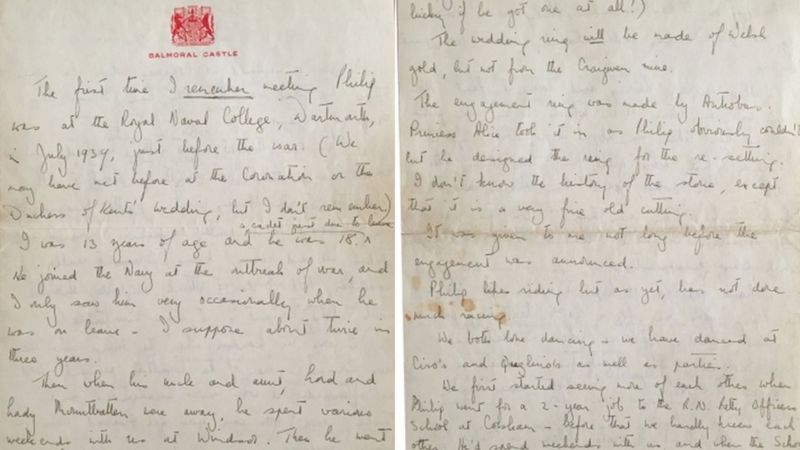 BALMORAL CASTLE
The first time I remember meeting Philip
was at the Royal Naval College, Dartmouth,
in July 1939, just before the war. (We
may have met before at the Coronation or the
Duchess of Kents' wedding, but I don't remember)
a cadet just due to leave
I was 13 years of age and he was 18 ^
He joined the Navy at the outbreak of war, and
I only saw him very occasionally when he
was on leave - I suppose about twice in
three years.
Then when his uncle and aunt, Lord and
Lady Mountbatten were away, he spent various
weekends with us at Windsor. Then he went
lucky if he got one at all!)
The wedding ring will be made of Welsh
gold, but not from the Craigwen mine.
The engagement ring was made by Antrobus.
Princess Alice took it in as Philip obviously couldn't
but he designed the ring for the re-setting.
I don't know the history of the stone, except
that it is a very fine old cutting.
It was given to me not long before the
engagement was announced.
Philip likes riding but as yet, has not done
much racing
We both love dancing - we have danced at
Ciro's and Quaglino's as well as parties.
We first started seeing more of each other when
Philip went for a 2-year job to the R.N. Petty Officers
School at Corsham - before that we hardly knew each
other. He'd spend weekends with us, and when the School